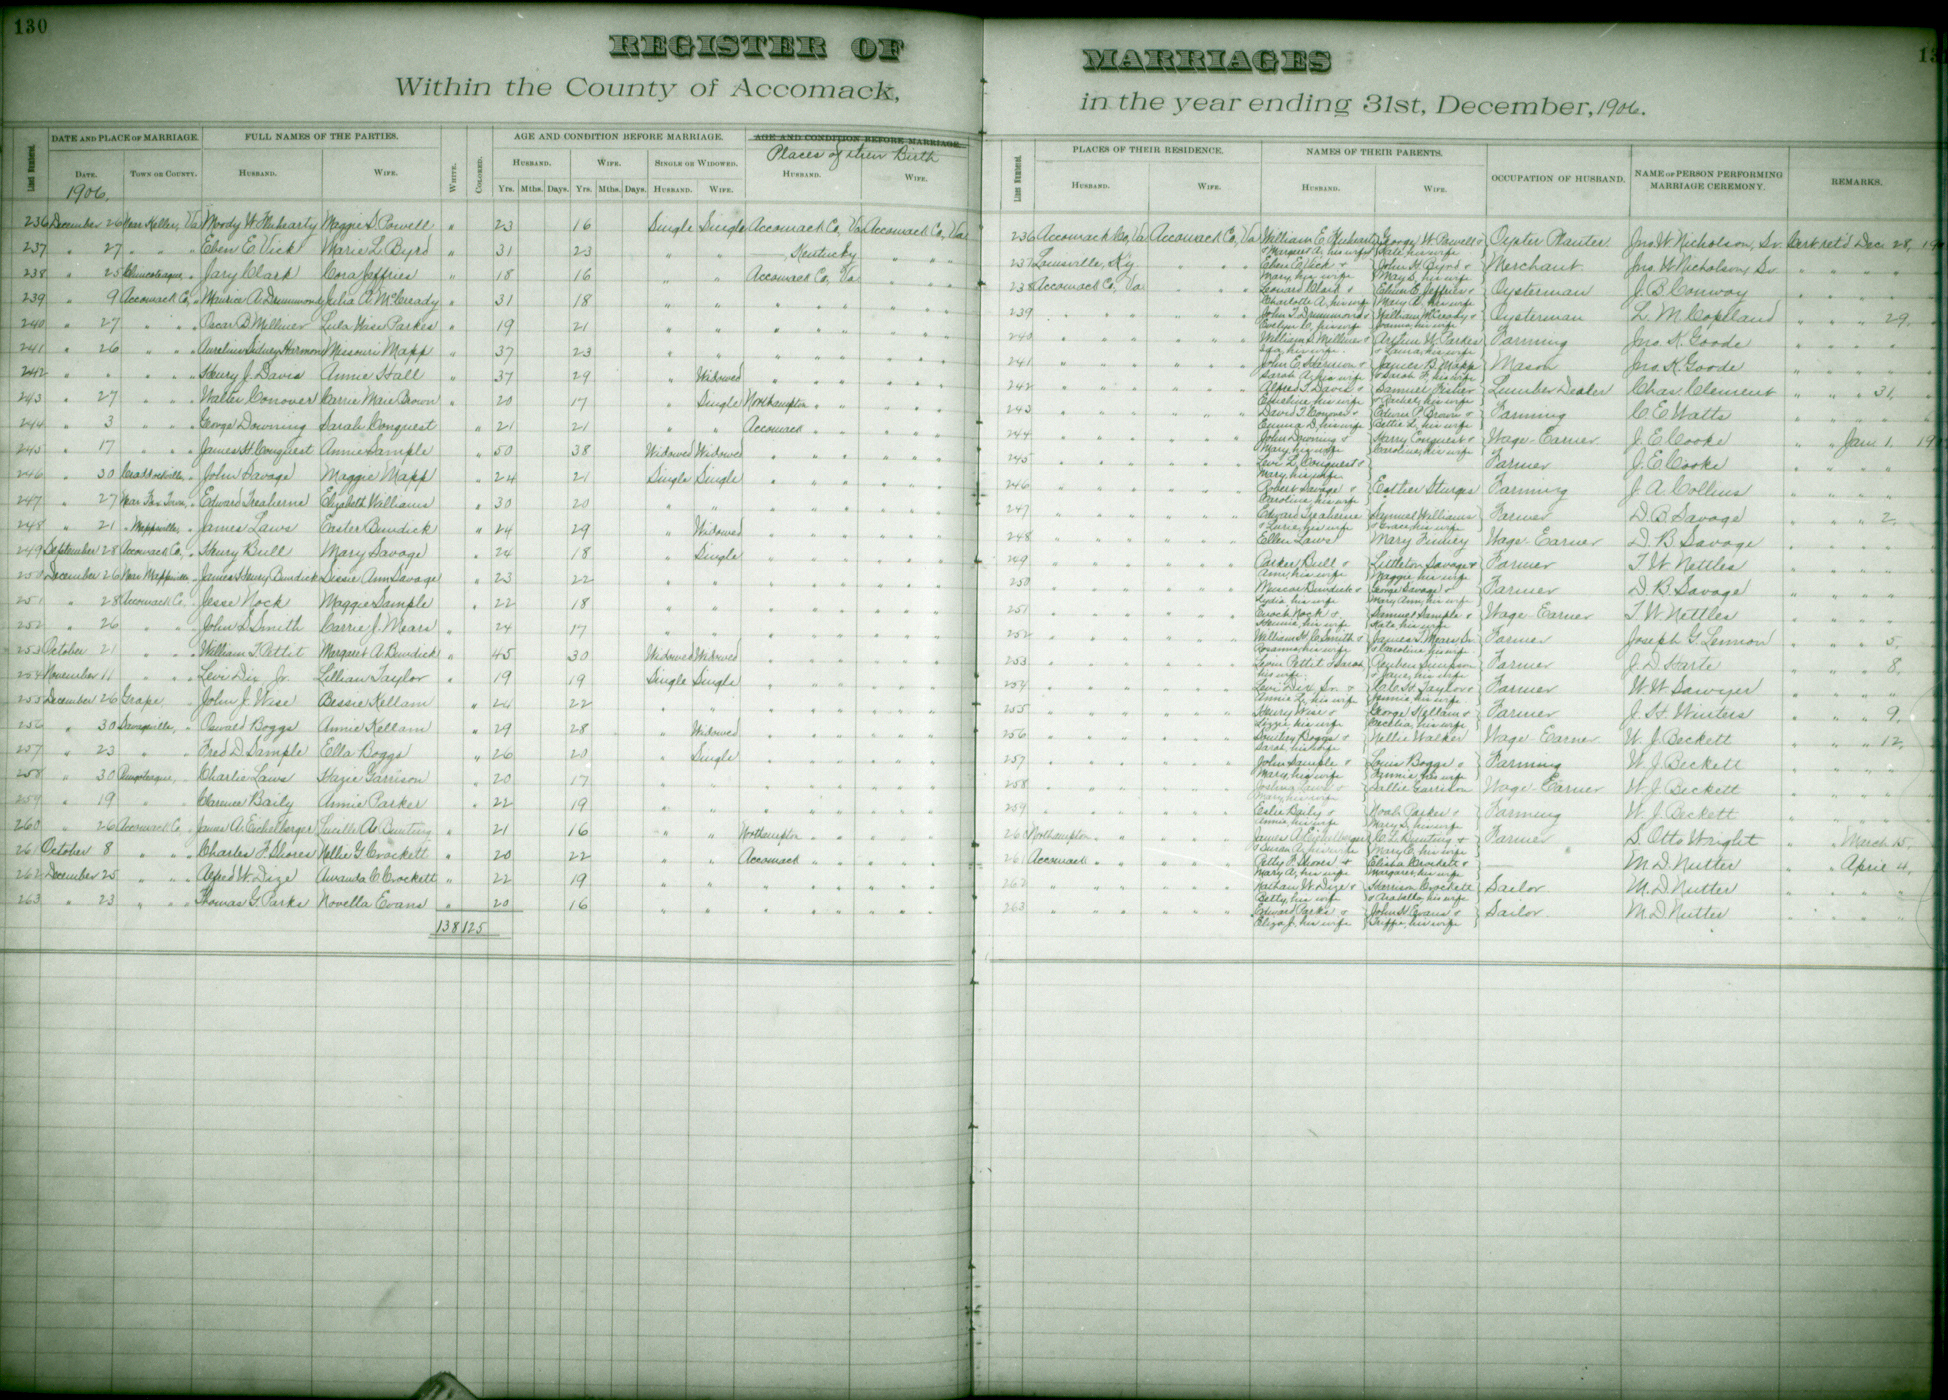 130
REGISTER OF MARRIAGES
131
Within the County of Accomack, in the year ending 31st, December, 1906.
LINE NUMBER.
DATE AND PLACE OF MARRIAGE.
FULL NAMES OF THE PARTIES.
WHITE.
COLORED.
AGE AND CONDITION BEFORE MARRIAGE.
AGE AND CONDITION BEFORE MARRIAGE.
Places of their Birth
DATE. TOWN OR COUNTY. HUSBAND. WIFE. HUSBAND. WIFE. SINGLE OR WIDOWED. HUSBAND. WIFE.
1906.
Yrs. Mths. Days. Yrs. Mths. Days. HUSBAND. WIFE.
236 December 26 Near Keller, Va Moody W. Fluhearty Maggie S. Powell " 23 16 Single Single Accomack Co, Va Accomack Co, Va
237 " 27 " " " Eben E. Vick Marie L. Byrd " 31 23 " " Kentucky " " "
238 " 25 Chincoteague, " Jary Clark Cora Jeffries " 18 16 " " Accomack Co, Va " " "
239 " 9 Accomack Co, " Maurice A. Drummond Julia A. McCready " 31 18 " " " " " " " "
240 " 27 " " " Oscar D. Milliner Luda Wise Parkes " 19 21 " " " " " " " "
241 " 26 " " " Aurelius Sidney Harmon Missouri Mapp " 37 23 " " " " " " " "
242 " " " " " Henry J. Davis Annie Hall " 37 29 " Widowed " " " " " "
243 " 27 " " " Walter Conover Carrie Marie Brown " 20 17 " Single Northampton " " " " "
244 " 3 " " " George Downing Sarah Conquest " 21 21 " " Accomack " " " " "
245 " 17 " " " James H. Conquest Annie Sample " 50 38 Widowed Widowed " " " " " "
246 " 30 Craddockville, " John Savage Maggie Mapp " 24 21 Single Single " " " " " "
247 " 27 Near Tas Town, " Edward Treaherne Elizabeth Williams " 30 20 " " " " " " " "
248 " 21 " Mappsville, " James Laws Easter Bundick " 24 29 " Widowed " " " " " "
249 September 28 Accomack Co, " Henry Bull Mary Savage " 24 18 " Single " " " " " "
250 December 26 Near Mappsville " James Henry Bundick Sissie Ann Savage " 23 22 " " " " " " " "
251 " 28 Accomack Co. " Jesse Nock Maggie Sample " 22 18 " " " " " " " "
252 " 26 " " " John S. Smith Carrie J. Mears " 24 17 " " " " " " " "
253 October 21 " " " William T. Pettit Margaret A. Bundick " 45 30 Widowed Widowed " " " " " "
254 November 11 " " " Levi Dix Jr. Lillian Taylor " 19 19 Single Single " " " " " "
255 December 26 Grape, " John J. Wise Bessie Kellam " 24 22 " " " " " " " "
256 " 30 Savageville, " Oswald Boggs Annie Kellam " 29 28 " Widowed " " " " " "
257 " 23 " " Fred D. Sample Ella Boggs " 26 20 " Single " " " " " "
258 " 30 Pungoteague, " Charlie Laws Hazie Garrison " 20 17 " " " " " " " "
259 " 19 " " Clarence Baily Annie Parker " 22 19 " " " " " " " "
260 " 26 Accomack Co " James A. Eichelberger Lucille A. Bunting " 21 16 " " Northampton " " " " "
261 October 8 " " " Charles F. Shores Nellie G. Crockett " 20 22 " " Accomack " " " " "
262 December 25 " " " Alfred W. Dize Amanda C. Crockett " 22 19 " " " " " " " "
263 " 23 " " " Thomas G. Parks Novella Evans " 20 16 " " " " " " " "
138 125
LINE NUMBER.
PLACES OF THEIR RESIDENCE.
NAMES OF THEIR PARENTS.
OCCUPATION OF HUSBAND.
NAME OF PERSON PERFORMING MARRIAGE CEREMONY.
REMARKS.
HUSBAND. WIFE. HUSBAND. WIFE.
236 Accomack Co, Va Accomack Co, Va William E. Fluhearty & Margaret A. his wife George W. Powell & Kate, his wife Oyster Planter Jno. W. Nicholson, Sr. Cert. ret'd Dec. 28, 19
237 Louisville, Ky " " " Eben C. Vick & Mary, his wife John H. Byrd & May S. his wife Merchant Jno. W. Nicholson, Sr. " " "
238 Accomack Co, Va " " " Leonard Clark & Charlotte A, his wife Edwin E. Jeffries & Mary C. his wife Oysterman J. B. Conway " " "
239 " " " " " " John T. Drummond & Evelyn C, his wife William McCready & Joanna, his wife Oysterman L. M. Copeland " " " 29.
240 " " " " " " William S. Milliner & his wife Arthur W. Parkes & Laura, his wife Farming Jno. K. Goode " " "
241 " " " " " " John E. Harmon & Sarah A. his wife James B. Mapp & Sarah F. his wife Mason Jno. K. Goode " " "
242 " " " " " " Alfred T. Davis & Emeline, his wife Samuel Fisher & his wife Lumber Dealer Chas. Clement " " " 31,
243 " " " " " " David T. Conover & Emma D, his wife Edwin P. Brown & Bettie L, his wife Farming C. E. Watts " " "
244 " " " " " " John Downing & Mary, his wife Harry Conquest & Caroline, his wife Wage-Earner J. E. Cooke " " Jan. 1. 19
245 " " " " " " Levi L. Conquest & Mary, his wife Farmer J. E. Cooke " " "
246 " " " " " " Robert Savage & Caroline, his wife Esther Sturgis Farming J. A. Collins " " "
247 " " " " " " Edward Treaherne & Lurie, his wife Samuel Williams & Grace, his wife Farmer D. B. Savage " " " 2.
248 " " " " " " Ellen Laws Mary Finney Wage-Earner D. B. Savage " " "
249 " " " " " " Parker Bull & Amy, his wife Littleton Savage & Maggie, his wife Farmer T. W. Nettles " " "
250 " " " " " " Bundick & Lydia, his wife George Savage & Mary Ann, his wife Farmer D. B. Savage " " "
251 " " " " " " Enoch Nock & his wife Samuel Sample & Kate, his wife Wage-Earner T. W. Nettles " " "
252 " " " " " " William H. C. Smith & Rosanna, his wife James T. Mears Sr. & Caroline, his wife Farmer Joseph G. Lennon " " " 5.
253 " " " " " " Levin Pettit & Sarah his wife Reuben Simpson & Jane, his wife Farmer J. D. Harte " " " 8.
254 " " " " " " Levi Dix Sr. & Annie L, his wife C. C. H. Taylor & Jennie, his wife Farmer W. W. Sawyer " " "
255 " " " " " " Henry Wise & Lizzie, his wife George Kellam & his wife Farmer J. H. Winters " " " 9.
256 " " " " " " Southey Boggs & Sarah, his wife Nellie Walker Wage Earner W. J. Beckett " " " 12.
257 " " " " " " John Sample & Mary, his wife Louis Boggs & Fannie, his wife Farming W. J. Beckett " " "
258 " " " " " " Laws & Mary, his wife Sallie Garrison Wage-Earner W. J. Beckett " " "
259 " " " " " " Eslie Baily & Annie, his wife Noah Parker & Mary S. his wife Farming W. J. Beckett " " "
260 Northampton " " " " James A. Eichelberger & Susan A. his wife C. L. Bunting & Mary E, his wife Farmer S. Otto Wright " " March 15,
261 Accomack " " " " Petty P. Shores & Mary A, his wife Elisha Crockett & Margaret, his wife M. D. Nutter " " April 4.
262 " " " " " " Nathan W. Dize & Betty, his wife Harrison Crockett & Arabella, his wife Sailor M. D. Nutter " " "
263 " " " " " " Edward Parks & Eliza J, his wife John H. Evans & his wife Sailor M. D. Nutter " " "